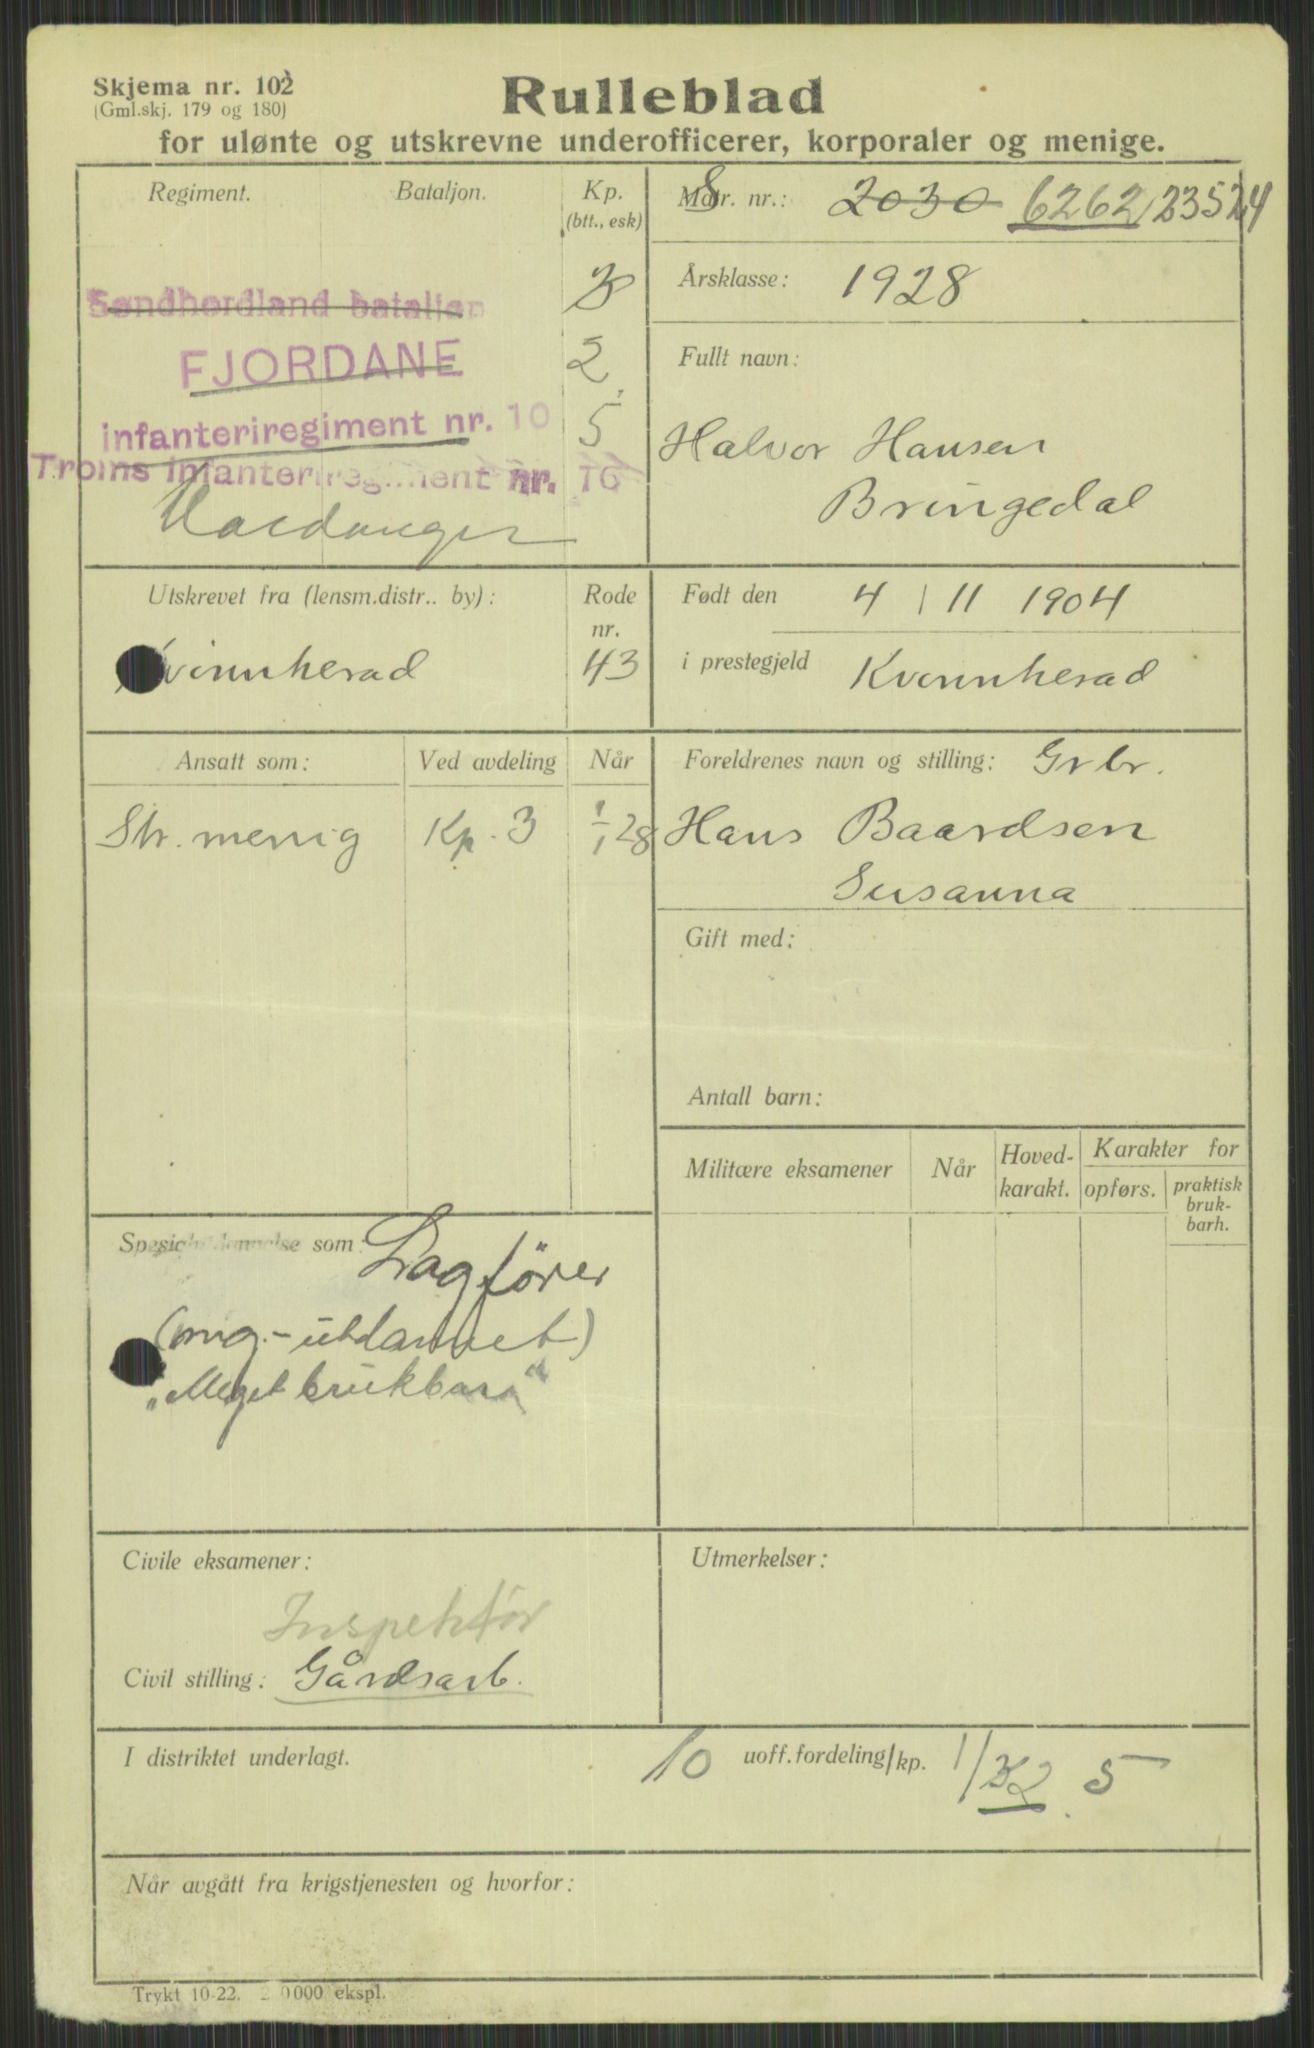 Skjema nr. 102
(Gml.skj. 179 og 180)
Rulleblad
for ulønte og utskrevne underofficerer, korporaler og menige.
Regiment. Bataljon. Kp.
(btt., esk)
Søndhordland bataljon 3
FJORDANE 2
infanteriregiment nr. 10 5
Troms infanteriregiment nr. 16
Hardanger
S Matr. nr.: 2030 6262 23524
Årsklasse: 1928
Fullt navn:
Halvor Hansen
Bringedal
Utskrevet fra (lensm.distr.. by): Rode
nr.
Kvinnherad 43
Født den 4 / 11 1904
i prestegjeld Kvinnherad
Ansatt som: Ved avdeling Når
Str. menig Kp. 3 1/1 28
Foreldrenes navn og stilling: Grbr.
Hans Baardsen
Susanna
Gift med:
Antall barn:
Militære eksamener Når Hoved-
karakt. Karakter for
opførs. praktisk
bruk-
barh.
som: Lagfører
(mg.-utdannet)
„Meget brukbar"
Civile eksamener:
Inspektør
Civil stilling: Gårdsarb.
Utmerkelser:
I distriktet underlagt. 10 uoff.fordeling/kp. 5
Når avgått fra krigstjenesten og hvorfor:
Trykt 10-22. 2 0000 ekspl.